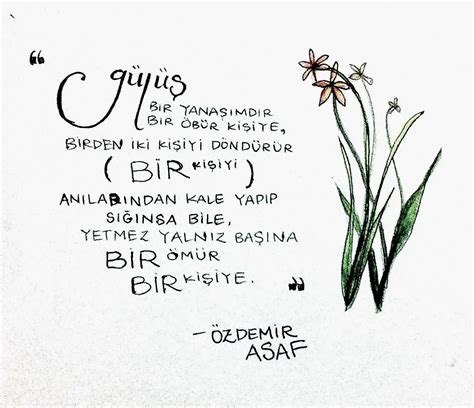 “ gülüş
BİR YANAŞIMDIR
BİR ÖBÜR KİŞİYE,
BİRDEN İKİ KİŞİYİ DÖNDÜRÜR
( BİR KİŞİYİ )
ANILARINDAN KALE YAPIP
SIĞINSA BİLE,
YETMEZ YALNIZ BAŞINA
BİR ÖMÜR
BİR KİŞİYE. „
- ÖZDEMİR
ASAF